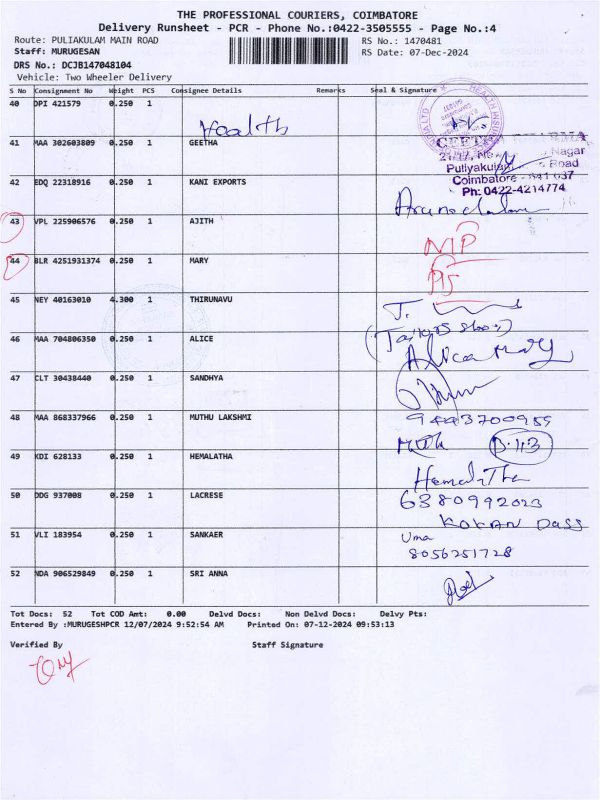 THE PROFESSIONAL COURIERS, COIMBATORE
Delivery Runsheet - PCR - Phone No.:0422-3505555 - Page No.:4
Route: PULIAKULAM MAIN ROAD
RS No.: 1470481
Staff: MURUGESAN
RS Date: 07-Dec-2024
DRS No.: DCJB147048104
Vehicle: Two Wheeler Delivery
S No Consignment No Weight PCS Consignee Details Remarks Seal & Signature
40 DPI 421579 0.250 1
Health
41 MAA 302603809 0.250 1 GEETHA
Nagar
Puliyakulam Road
Coimbatore - 641 037
Ph: 0422-4214774
42 EDQ 22318916 0.250 1 KANI EXPORTS
43 VPL 225906576 0.250 1 AJITH
44 BLR 4251931374 0.250 1 MARY
45 NEY 40163010 4.300 1 THIRUNAVU
46 MAA 704806350 0.250 1 ALICE
47 CLT 30438440 0.250 1 SANDHYA
48 MAA 868337966 0.250 1 MUTHU LAKSHMI
49 KDI 628133 0.250 1 HEMALATHA
50 DDG 937008 0.250 1 LACRESE
6380992023
51 VLI 183954 0.250 1 SANKAER
Uma
8056251728
52 NDA 906529849 0.250 1 SRI ANNA
Tot Docs: 52 Tot COD Amt: 0.00 Delvd Docs: Non Delvd Docs: Delvy Pts:
Entered By :MURUGESHPCR 12/07/2024 9:52:54 AM Printed On: 07-12-2024 09:53:13
Verified By Staff Signature